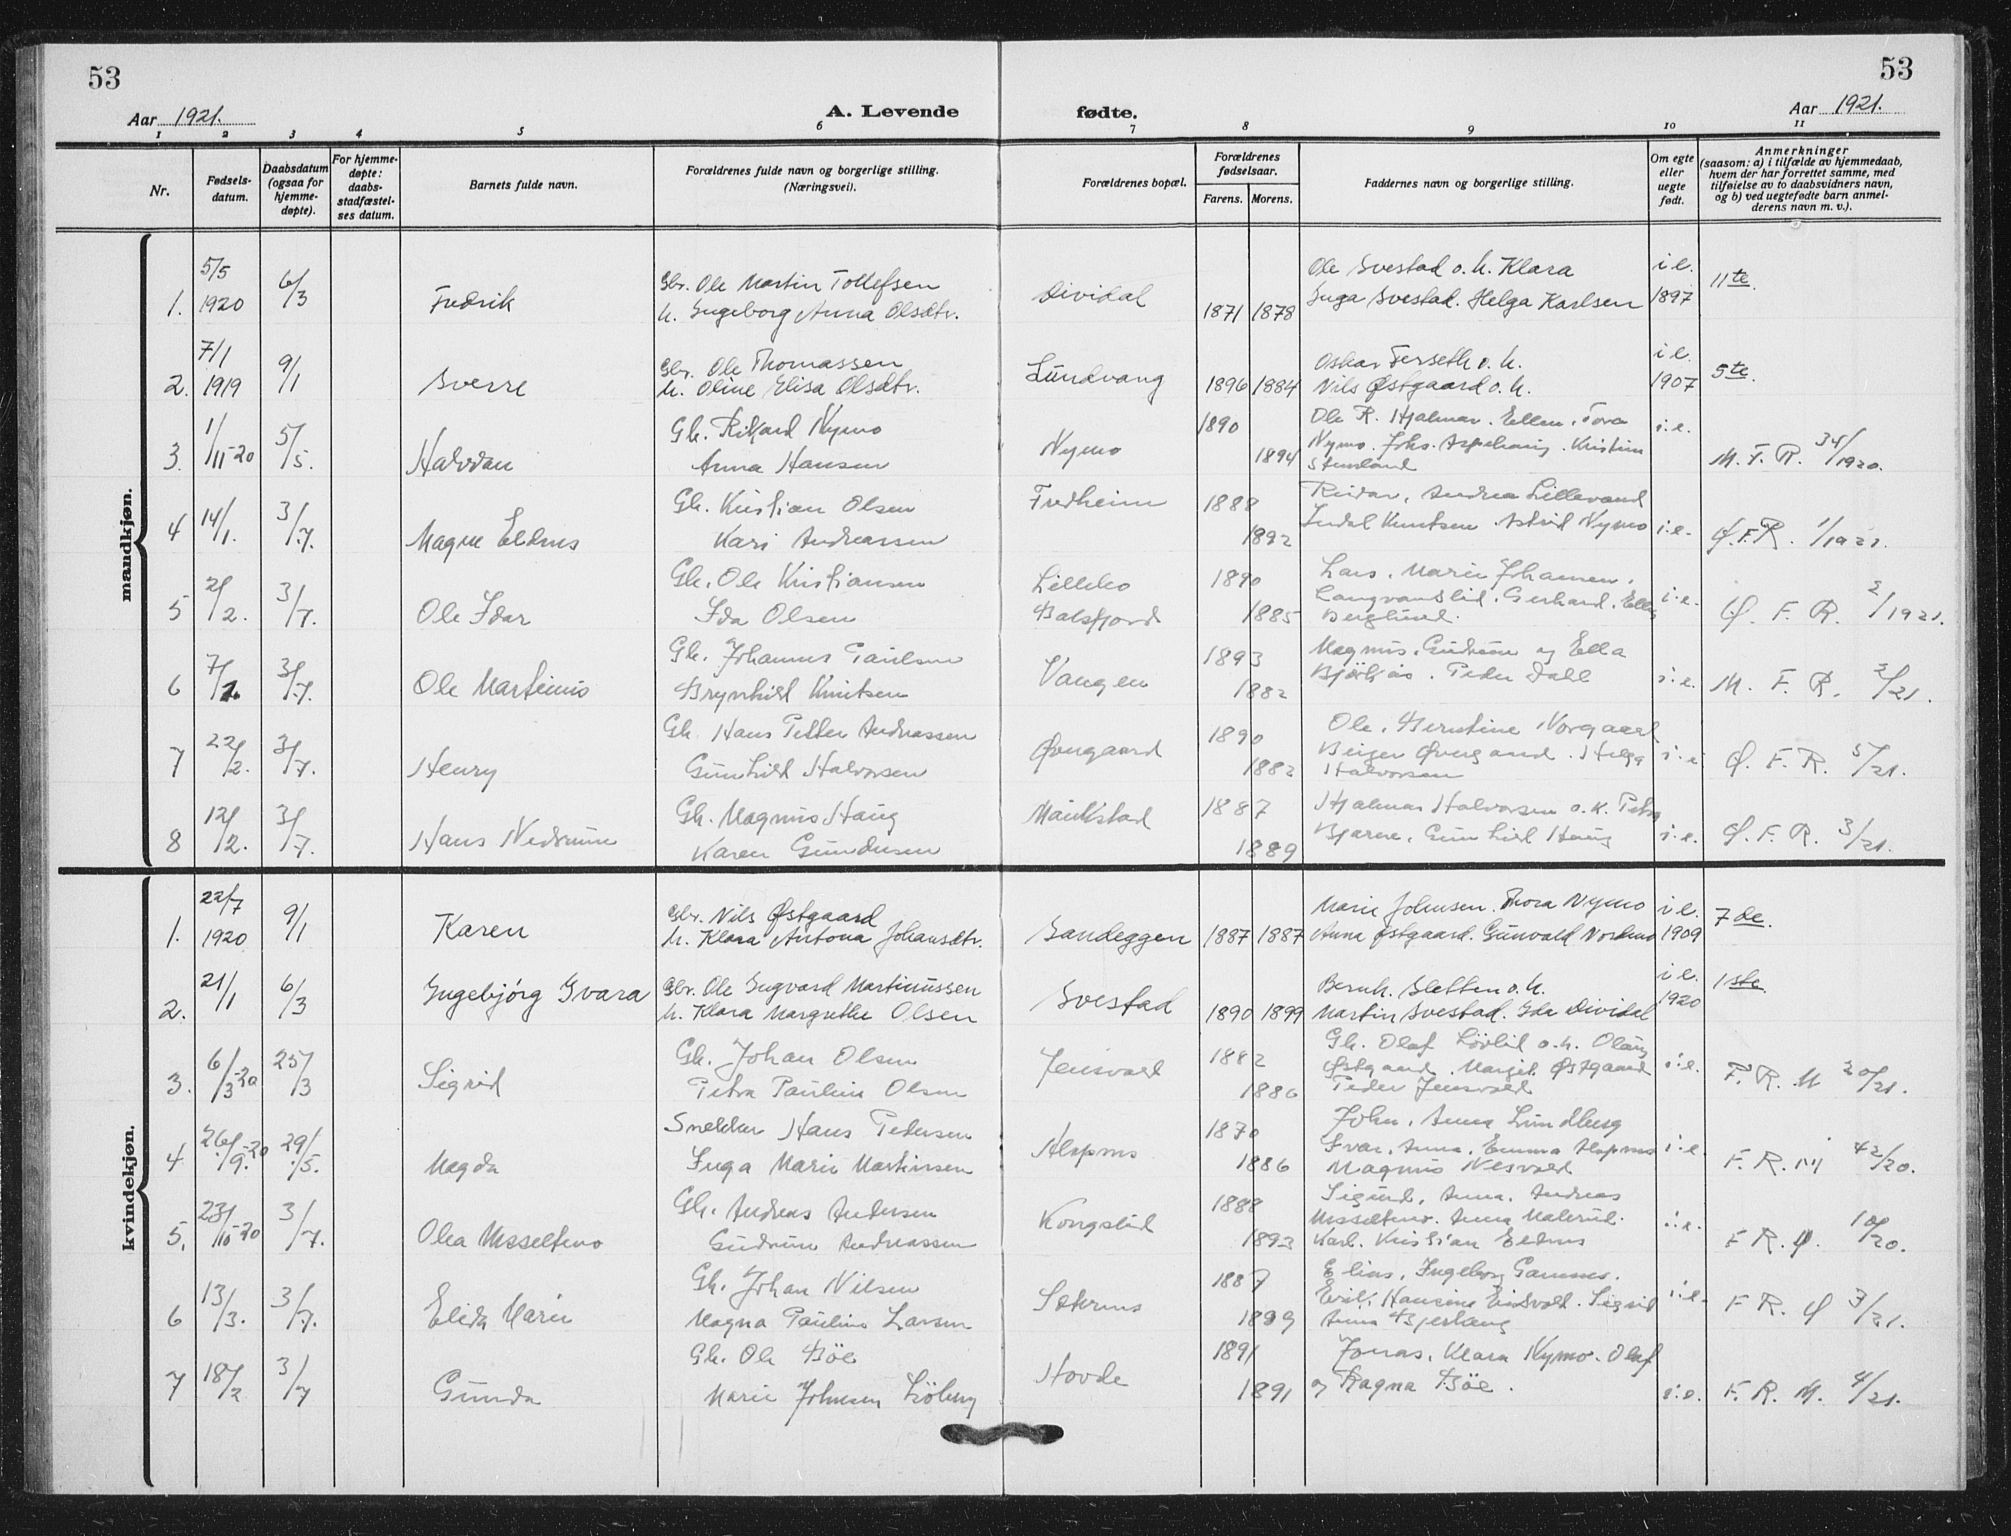 53
53
Aar 1921.
A. Levende
fødte.
Aar 1921.
1 2 3 4 5 6 7 8 9 10 11
Nr.
Fødsels-
datum.
Daabsdatum
(ogsaa for
hjemme-
døpte).
For hjemme-
døpte:
daabs-
stadfæstel-
ses datum.
Barnets fulde navn.
Forældrenes fulde navn og borgerlige stilling.
(Næringsvei).
Forældrenes bopæl.
Forældrenes
fødselsaar.
Farens. Morens.
Faddernes navn og borgerlige stilling.
Om egte
eller
uegte
født.
Anmerkninger
(saasom: a) i tilfælde av hjemmedaab,
hvem der har forrettet samme, med
tilføielse av to daabsvidners navn,
og b) ved uegtefødte barn anmel-
derens navn m. v.).
mandkjøn.
5/5 Gbr. Ole Martin Tollefsen Ole Svestad o. h. Klara i e.
1. 1920 6/3 Fredrik h. Ingeborg Anna Olsdtr. Dividal 1871 1878 Inga Svestad. Helga Karlsen 1897 11te.
7/1 Gbr. Ole Thomassen Oskar Ferseth o. h. i e.
2. 1919 9/1 Sverre h. Oline Elisa Olsdtr. Lundvang 1896 1884 Nils Østgaard o. h. 1907 5te.
1/ Gb. Rikard Nymo 1890 Ole R. Hjalmar. Ellen. Tora i. e.
3. /11-20 5/5. Halvdan Anna Hansen Nymo 1894 Nymo. Johs. Kristine M. F. R. 34/1920.
14/1. Gb. Kristian Olsen Fredheim 1888 Reidar, Andrea Lillevand
4 3/7. Magne Eldnes Kari Andreassen 1892 Indal Knutsen Astrid Nymo i. e. Ø. F. R. 1/1921.
2/ Gb. Ole Kristiansen Lillebo 1890 Lars, Marie Johansen,
5 /2. 3/7. Ole Idar Ida Olsen Balsfjord 1885 Langvandslid. Gerhard, i. e. Ø. F. R. 2/1921.
7/ Gb. Johannes Paulsen 1893 Magnus, Gudrun og Ella
6 3/7. Ole Martinus Brynhild Knutsen Vangen 1882 Bjørkås. Peder Dall i. e. M. F. R. 2/21.
22/ Gb. Hans Petter Andreassen 1890 Ole, Berntine Norgaard
7 /2. 3/7. Henry Gunhild Halvorsen Øvergaard 1882 Birger Øvergaard. Helga i. e Ø. F. R. 5/21.
Halvorsen
12/ Gb. Magnus Haug Maukstad 1887 Hjalmar Halvorsen o. k. Petra
8 /2. 3/7. Hans Nedrum Karen Gundersen 1889 Bjarne, Gunhild Haug i. e. Ø. F. R. 3/21.
kvindekjøn.
22/7 Gbr. Nils Østgaard Marie Johnsen. Thora Nymo i e.
1. 1920 9/1 Karen h. Klara Antona Johansdtr. Sandeggen 1887 1887 Anna Østgaard. Gunvald Nordmo 1909 7de.
21/1 Gbr. Ole Ingvard Martinussen Bernh. Sletten o. h. i e.
2. 6/3 Ingebjørg Svara h. Klara Margrethe Olsen Svestad 1890 1899 Martin Svestad. Ida Dividal 1920 1ste
6/3-20 Gb. Johan Olsen 1882 Gb. Olaf Løvlid o. h. Olaug
3. 25/3 Sigrid Petra Pauline Olsen Jensvold 1886 Østgaard. Margit Østgaard i. e. F. R. M 20/21.
Peder Jensvold
26/9.-20 Snekker Hans Petersen 1870 John, Anna Lundberg
4 29/5. Magda Inga Marie Martinsen Alapmo 1886 Ivar, Anna, Emma Alapmo i. e. F. R. M 42/20.
Magnus Nesvold
23/10-20 Gb. Andreas Andersen 1888 Sigurd, Anna, Andreas
5. 3/7. Olea Messeltmo Gudrun Andreassen Kongslid 1893 Messeltmo. Anna i. e. F. R. Ø. 18/20.
Karl. Kristian Eldnes
13/ Gb. Johan Nilsen 1887 Elias, Ingeborg
6 /3. 3/7. Elida Marie Magna Pauline Larsen 1899 Hansine Eidsvold. Sigrid i. e. F. R. Ø 3/21.
18/2 Gb. Ole Bøe 1891 Jonas. Klara Nymo. Olaf
7 3/7 Gunda Marie Johnsen Hovde 1891 og Ragna Bøe. i. e. F. R. M. 4/21.